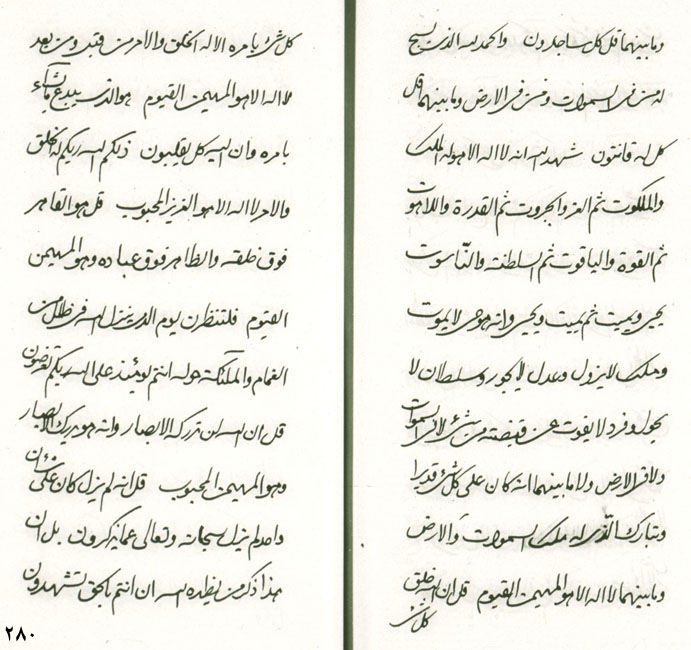 وما بينهما قل كل ساجدون والحمد لله الذي يسبح
له من في السموات ومن في الارض وما بينهما قل
كل له قانتون شهد الله انه لا اله الا هو له الملك
والملكوت ثم العز والجبروت ثم القدرة واللاهوت
ثم القوة والياقوت ثم السلطنة والناسوت
يحيي ويميت ثم يميت ويحيي وانه هو حي لا يموت
وملك لا يزول وعدل لا يجور وسلطان لا
يحول وفرد لا يفوت عن قبضته من شيء لا في السموات
ولا في الارض ولا ما بينهما انه كان على كل شيء قديرا
وتبارك الذي له ملك السموات والارض
وما بينهما لا اله الا هو المهيمن القيوم قل ان الله خلق
كل شيء
كل شيء بامره الا له الخلق والامر من قبل ومن بعد
لا اله الا هو المهيمن القيوم هو الذي يبدع ما يشاء
بامره وان اليه كل يقلبون ذلكم الله ربكم له الخلق
والامر لا اله الا هو العزيز المحبوب قل هو القاهر
فوق خلقه والظاهر فوق عباده وهو المهيمن
القيوم فلتنظرن يوم الذي ينزل الله في ظلل من
الغمام والملئكة حوله انتم يومئذ على الله ربكم تعرضون
قل ان الله لن تدركه الابصار وانه هو يدرك الابصار
وهو المهيمن المحبوب قل انه لم يزل كان على شأن
واحد لم يزل سبحانه وتعالى عما يذكرون بل ان
هذا ذكر من يظهره الله ان انتم بالحق تشهدون
٢٨٠